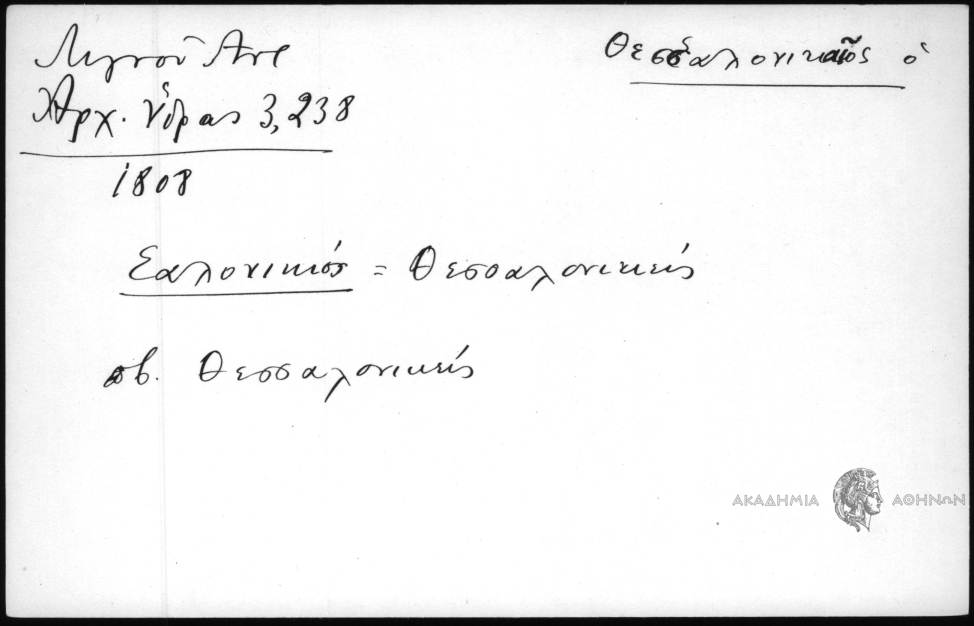 Λιγνού Αντ
Αρχ. Ύδρας 3,238
1808
Θεσσαλονικαῖος ὁ
Σαλονικιός = Θεσσαλονικεύς
πβ. Θεσσαλονικεύς
ΑΚΑΔΗΜΙΑ ΑΘΗΝΩΝ